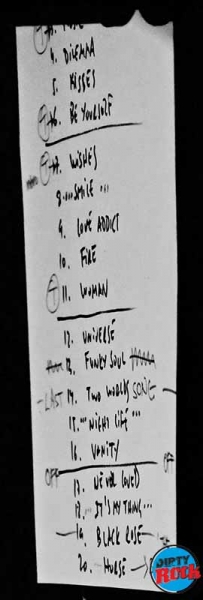 4. DILEMMA
5. KISSES
6. BE YOURSELF
7. WISHES
8. ...SMILE...
9. LOVE ADDICT
10. FIRE
11. WOMAN
12. UNIVERSE
13. FUNKY SOUL
LAST 14. TWO WORLDS SONG
15. ...NIGHT LIFE...
16. VANITY
OFF OFF
17. NEVER LOVED
18. ...IT'S MY THING...
19. BLACK ROSE
20. NURSE
DIRTY
ROCK